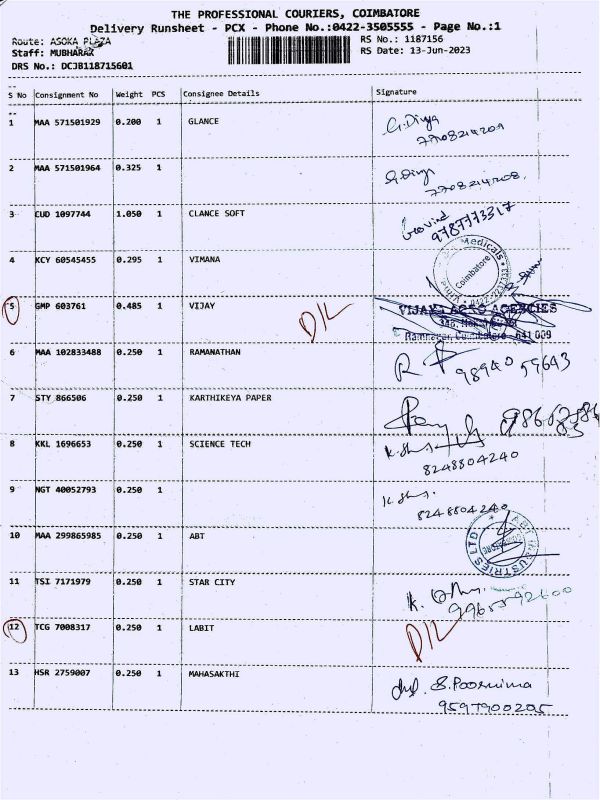 THE PROFESSIONAL COURIERS, COIMBATORE
Delivery Runsheet - PCX - Phone No.:0422-3505555 - Page No.:1
Route: ASOKA PLAZA RS No.: 1187156
Staff: MUBHARAK RS Date: 13-Jun-2023
DRS No.: DCJB118715601
S No Consignment No Weight PCS Consignee Details Signature
1 MAA 571501929 0.200 1 GLANCE G.Divya
2 MAA 571501964 0.325 1 G.Divya
7708214208
3 CUD 1097744 1.050 1 CLANCE SOFT Govind
9787773317
4 KCY 60545455 0.295 1 VIMANA Medicals
Coimbatore
5 GMP 603761 0.485 1 VIJAY D/L VIJAY AGRO AGENCIES
Ramnagar, Coimbatore - 641 009
6 MAA 102833488 0.250 1 RAMANATHAN
98940 59643
7 STY 866506 0.250 1 KARTHIKEYA PAPER
8 KKL 1696653 0.250 1 SCIENCE TECH
8248804240
9 NGT 40052793 0.250 1
8248804240
10 MAA 299865985 0.250 1 ABT ABT INDUSTRIES LTD
11 TSI 7171979 0.250 1 STAR CITY
12 TCG 7008317 0.250 1 LABIT D/L
13 HSR 2759007 0.250 1 MAHASAKTHI S.Poornima
9597900205